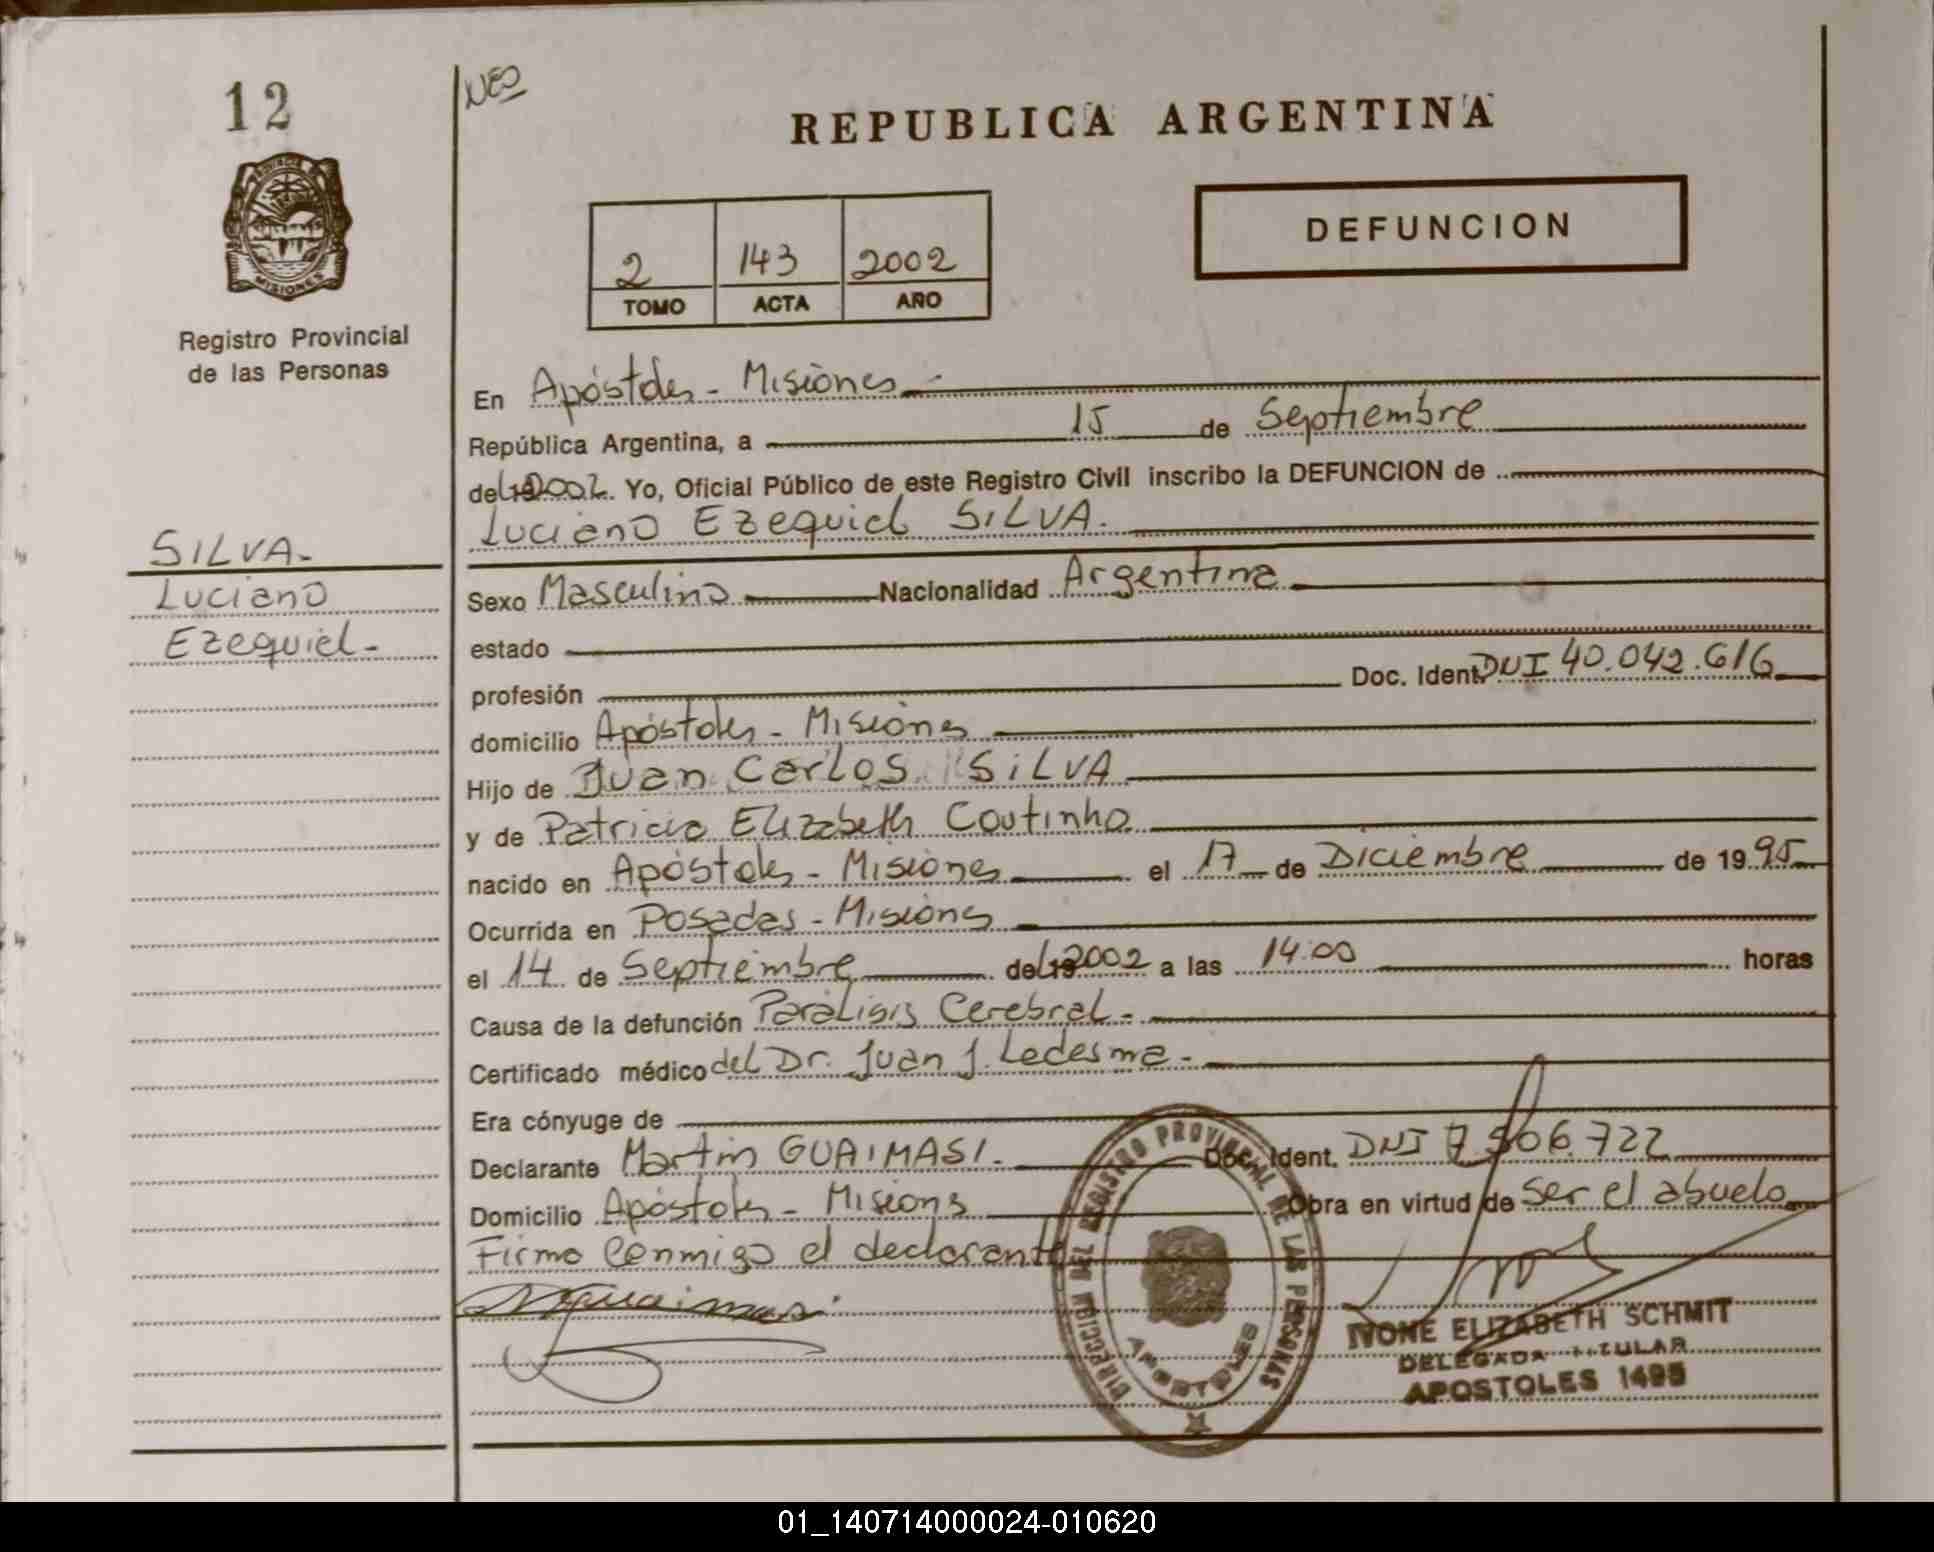 12
NEO
REPUBLICA ARGENTINA
PROVINCIA DE
MISIONES
Registro Provincial
de las Personas
2 143 2002
TOMO ACTA AÑO
DEFUNCION
En Apóstoles - Misiones
República Argentina, a 15 de Septiembre
del 2002. Yo, Oficial Público de este Registro Civil inscribo la DEFUNCION de
Luciano Ezequiel SILVA.
SILVA.
Luciano
Ezequiel.
Sexo Masculino Nacionalidad Argentina
estado
profesión Doc. Ident. DNI 40.042.616
domicilio Apóstoles - Misiones
Hijo de Juan Carlos SILVA
y de Patricia Elizabeth Coutinho
nacido en Apóstoles - Misiones el 17 de Diciembre de 1995
Ocurrida en Posadas - Misiones
el 14 de Septiembre del 2002 a las 14:00 horas
Causa de la defunción Paralisis Cerebral.
Certificado médico del Dr. Juan J. Ledesma.
Era cónyuge de
Declarante Martin GUAIMASI. Doc. Ident. DNI 7.506.722
Domicilio Apóstoles - Misiones Obra en virtud de ser el abuelo
Firma Conmigo el declarante
DIRECCION DEL REGISTRO PROVINCIAL DE LAS PERSONAS
APOSTOLES
IVONE ELIZABETH SCHMIT
DELEGADA TITULAR
APOSTOLES 1495
01_140714000024-010620